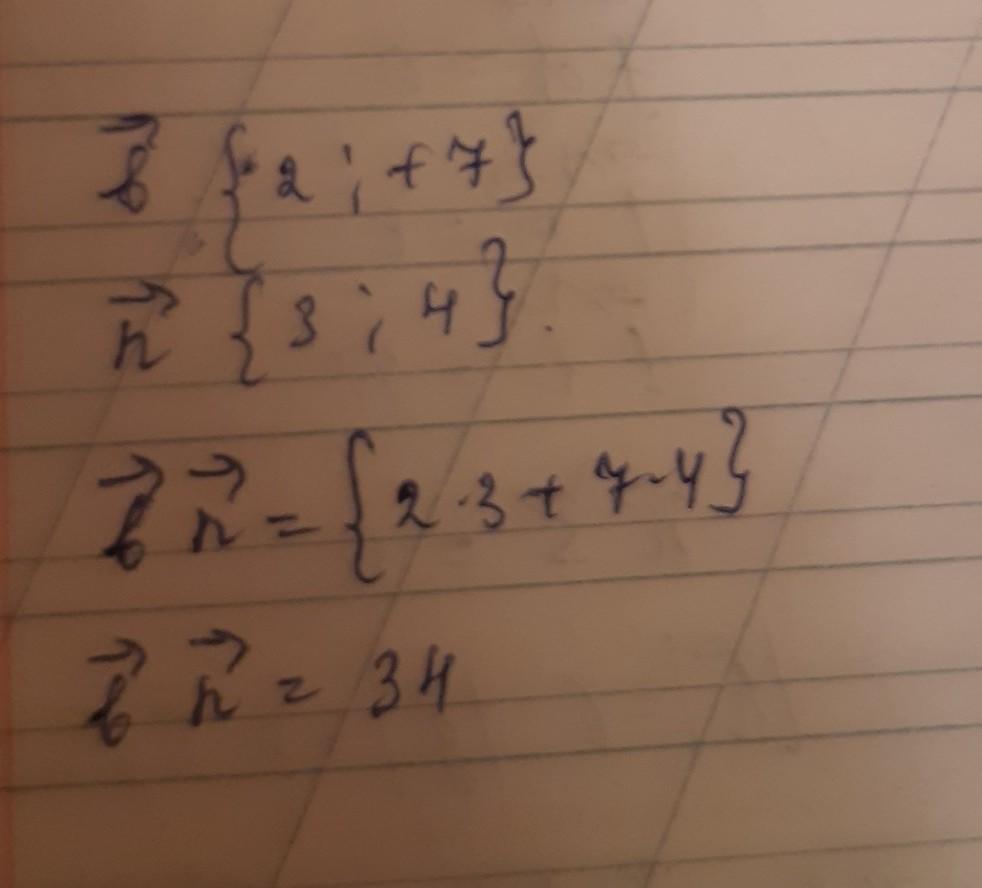 b⃗ {2 ; +7}
n⃗ {3 ; 4}.
b⃗ n⃗ = {2·3 + 7·4}
b⃗ n⃗ = 34